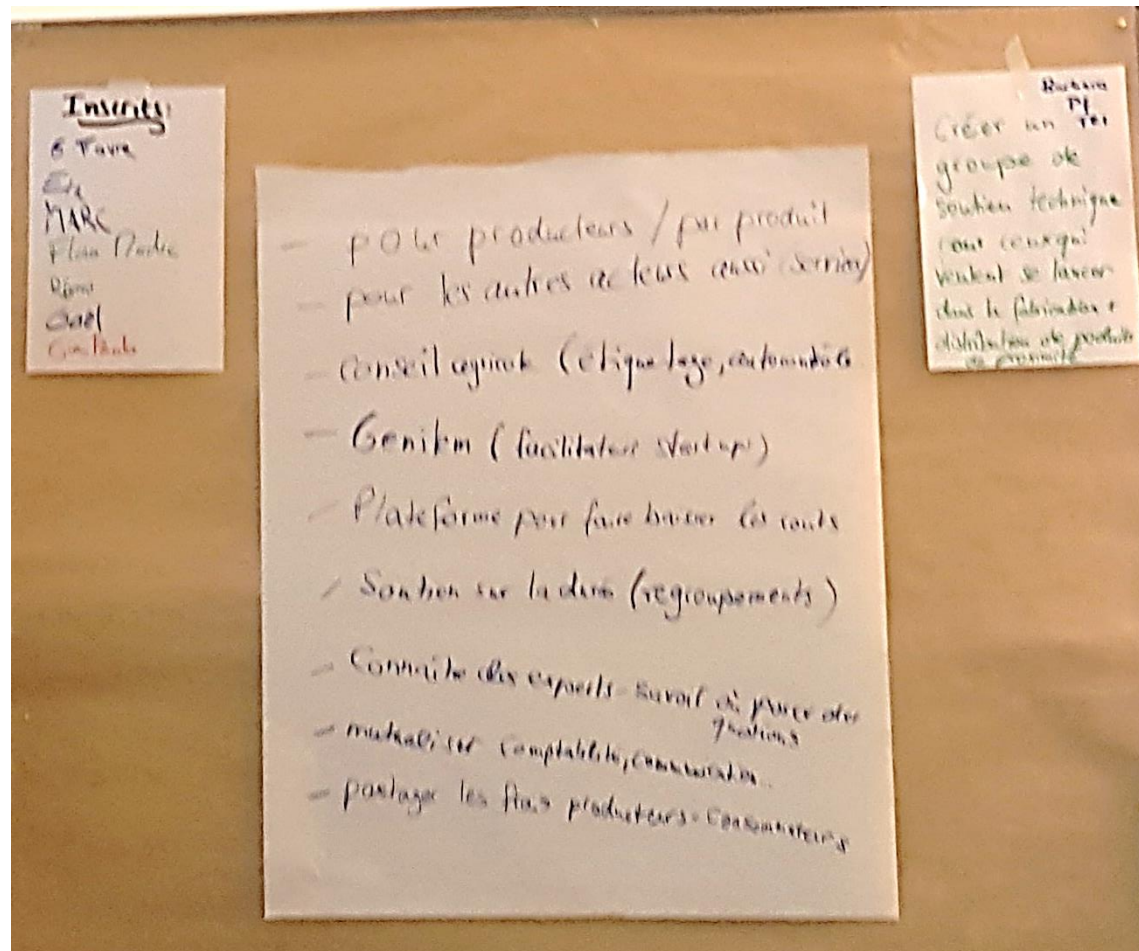 Inscrits:
Favre
MARC
Gaël
- pour producteurs / par produit
- pour les autres acteurs aussi
- Conseil (étiquetage,
- Genilem (facilitateur startup)
- Plateforme pour faire baisser les couts
- Soutien sur la durée (regroupements)
- Connaître des experts - savoir où poser des
questions
- mutualiser comptabilité, communication..
- partager les frais producteurs-consommateurs
Créer un
groupe de
soutien technique
pour ceux qui
veulent se lancer
dans la fabrication +
distribution de produits
de proximité